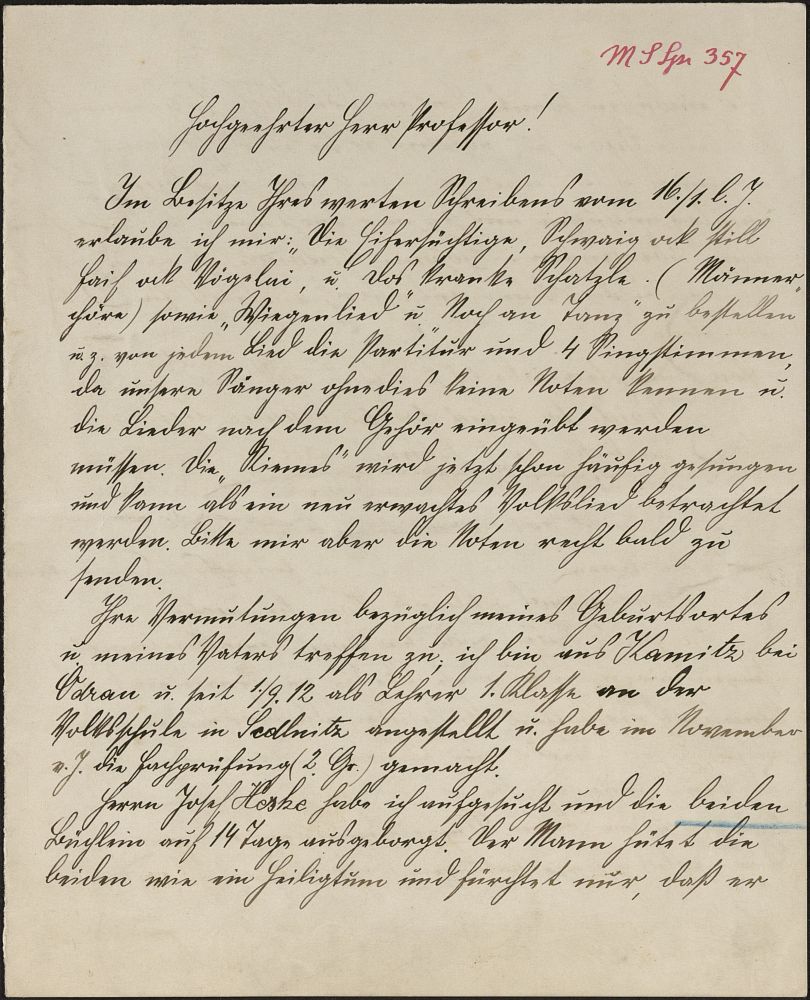 M S Spr 357
Hochgeehrter Herr Professor!
Im Besitze Ihres werten Schreibens vom 16./1. l. J.
erlaube ich mir: „Die Eifersüchtige, Schwaig ock still
ock Vögelai, u. Dos kranke Schatzle. (Männer-
chöre) sowie „Wiegenlied“ u. Noch an Tanz“ zu bestellen
u. z. von jedem Lied die Partitur und 4 Singstimmen,
da unsere Sänger ohnedies keine Noten kennen u.
die Lieder nach dem Gehör eingeübt werden
müssen. Die „ wird jetzt schon häufig gesungen
und kann als ein neu erwachtes Volkslied betrachtet
werden. Bitte mir aber die Noten recht bald zu
senden.
Ihre Vermutungen bezüglich meines Geburtsortes
u. meines Vaters treffen zu; ich bin aus Kamitz bei
Odrau u. seit 1/9. 12 als Lehrer 1. Klasse an der
Volksschule in Sedlnitz angestellt u. habe im November
v. J. die Fachprüfung (2. Gr.) gemacht.
Herrn Josef Heske habe ich aufgesucht und die beiden
Büchlein auf 14 Tage ausgeborgt. Der Mann hütet die
beiden wie ein Heiligtum und fürchtet nur, daß er